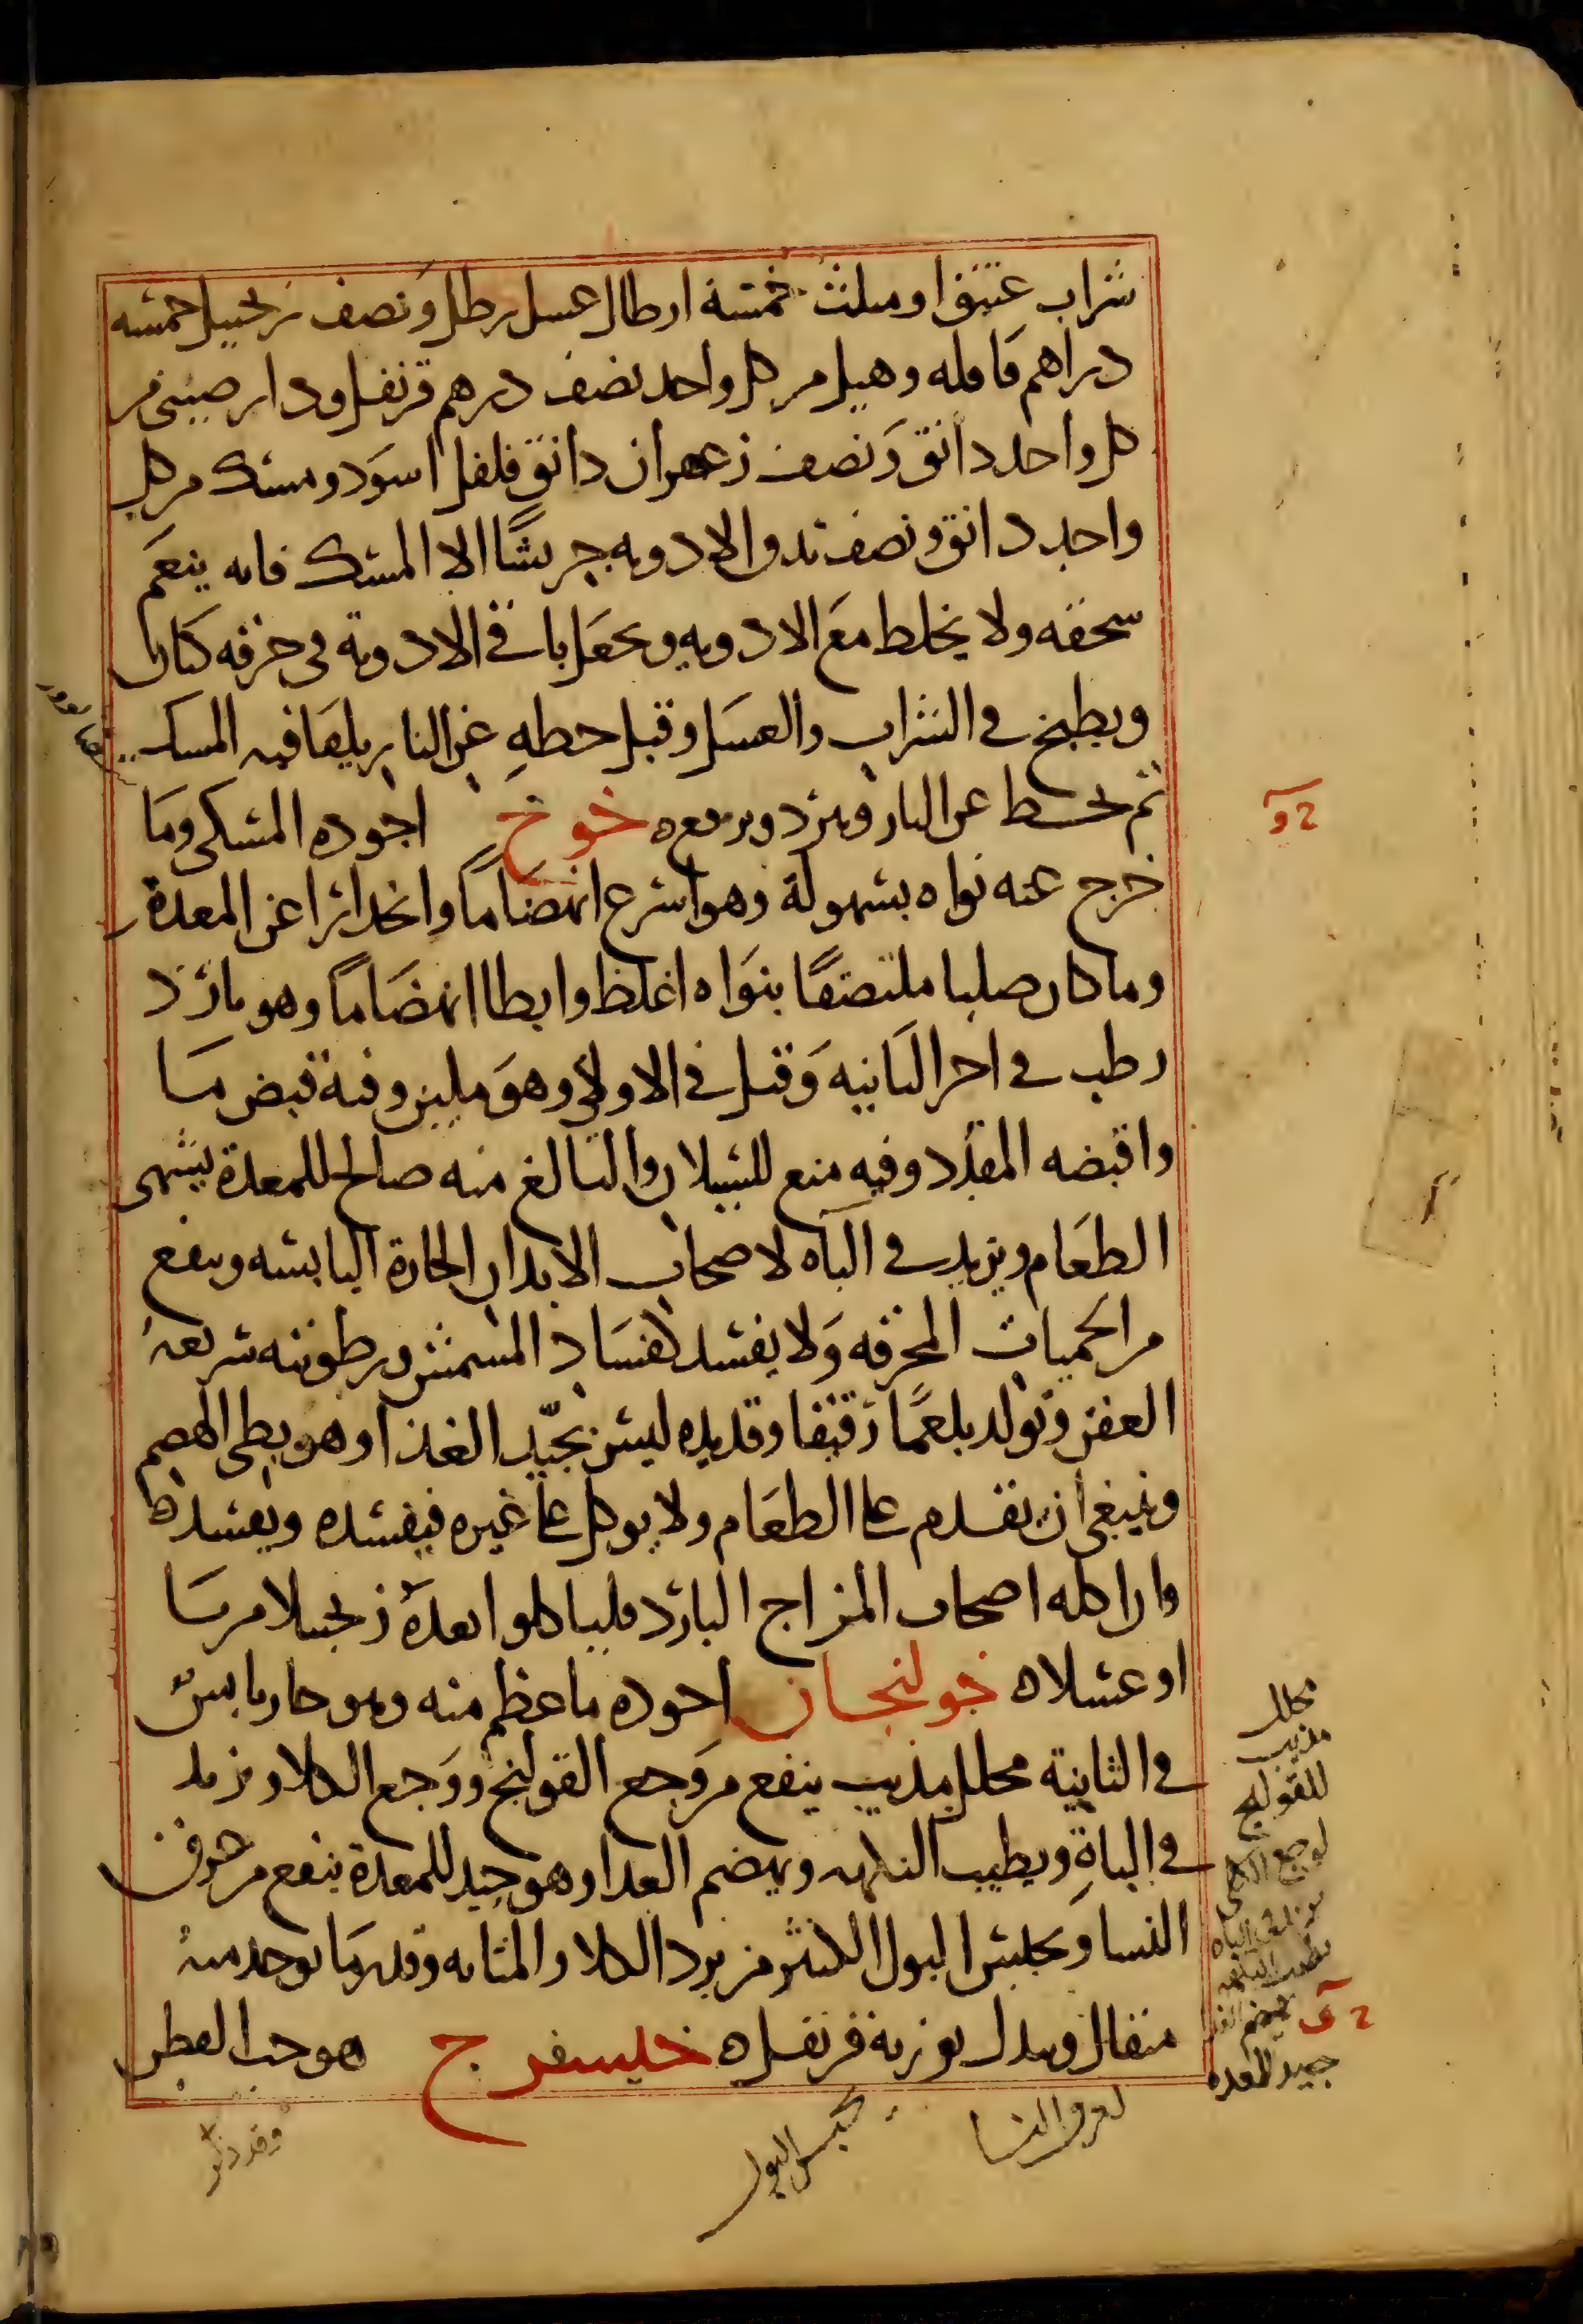 شراب عتيق او مثلث خمسة ارطال عسل رطل ونصف زنجبيل خمسه
دراهم قاقله وهيل من كل واحد نصف درهم قرنفل ودارصينى من
كل واحد دانق ونصف زعفران دانق فلفل اسود ومسك من كل
واحد دانق ونصف تدق الادويه جريشًا الا المسك فانه ينعم
سحقه ولا يخلط مع الادويه ويجعل باقي الادوية فى خرقه كتان
ويطبخ في الشراب والعسل وقبل حطهِ عن النار يلقا فيه المسك
ثم يحط عن النار ويبرد ويرفع ه خوخ اجوده المسكى وما
خرج عنه نواه بسهولة وهو اسرع انهضامًا وانحدارًا عن المعدة
وما كان صلبا ملتصقًا بنواه اغلظ وابطا انهضامًا وهو بارد
رطب في اخر الثانيه وقيل في الاولى وهو ملين وفيه قبض ما
واقبضه المقدد وفيه منع للسيلان والبالغ منه صالح للمعدة يشهى
الطعام ويزيد في الباه لاصحاب الابدان الحارة اليابسه وينفع
من الحميات المحرقه ولا يفسد كفساد المشمش ورطوبته سريعة
العفن وتولد بلغمًا رقيقا وقديده ليس بجيّد الغذا وهو بطى الهضم
وينبغى ان يقدم على الطعام ولا يوكل على غيره فيفسده ويفسد ه
وان اكله اصحاب المزاج البارد فلياكلوا بعده زنجبيلا مربا
او عسلا ه خولنجان اجوده ما عظم منه وهو حار يابس
في الثانية محلل مذيب ينفع من وجع القولنج ووجع الكلا ويزيد
في الباهِ ويطيب النكهه ويهضم الغدا وهو جيد للمعدة ينفع من عرق
النسا ويحبس البول الكثير من برد الكلا والمثانه وقدر ما يوخد منهُ
مثقال وبدل بوزنه قرنفل ه خيسفرج هو حب القطن
محلل
مذيب
للقولنج
لوجع الكلى
يزيد في الباه
يطيب النكهه
يهضم الغدا
جيد للمعده
لعرق النسا
يحبس البول
وقد ذكر